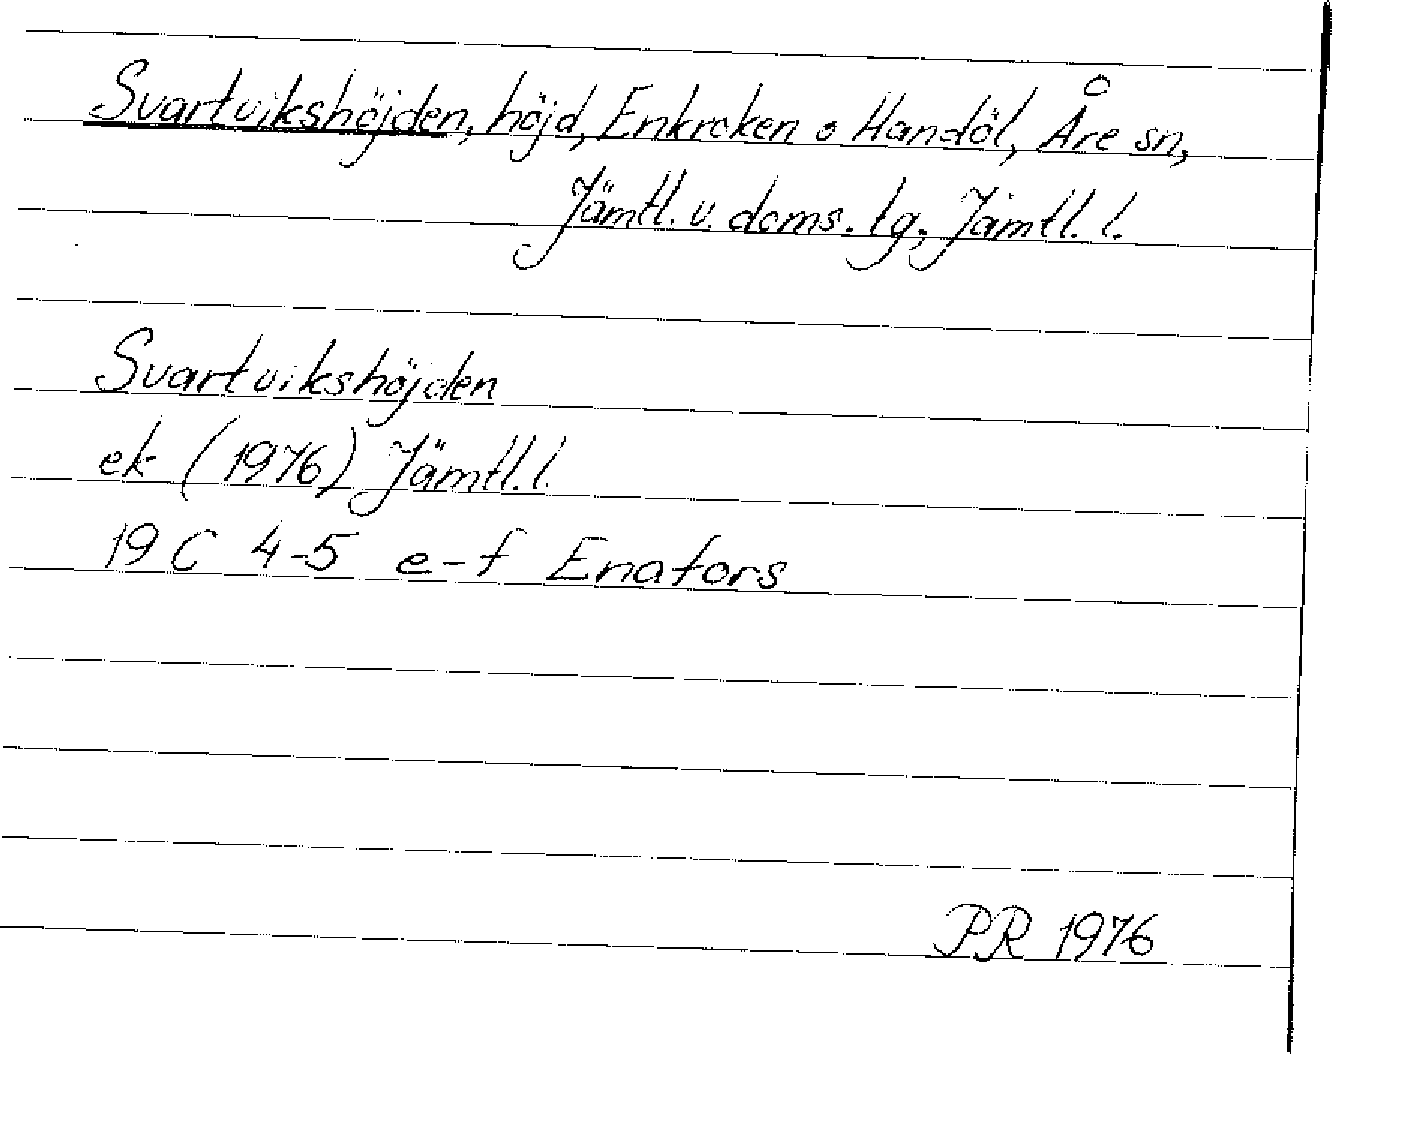 Svartvikshöjden, höjd, Enkroken o Handöl, Åre sn,
Jämtl. v. doms. lg, Jämtl. l.
Svartvikshöjden
ek (1976) Jämtl. l.
19 C 4-5 e-f Enafors
PR 1976